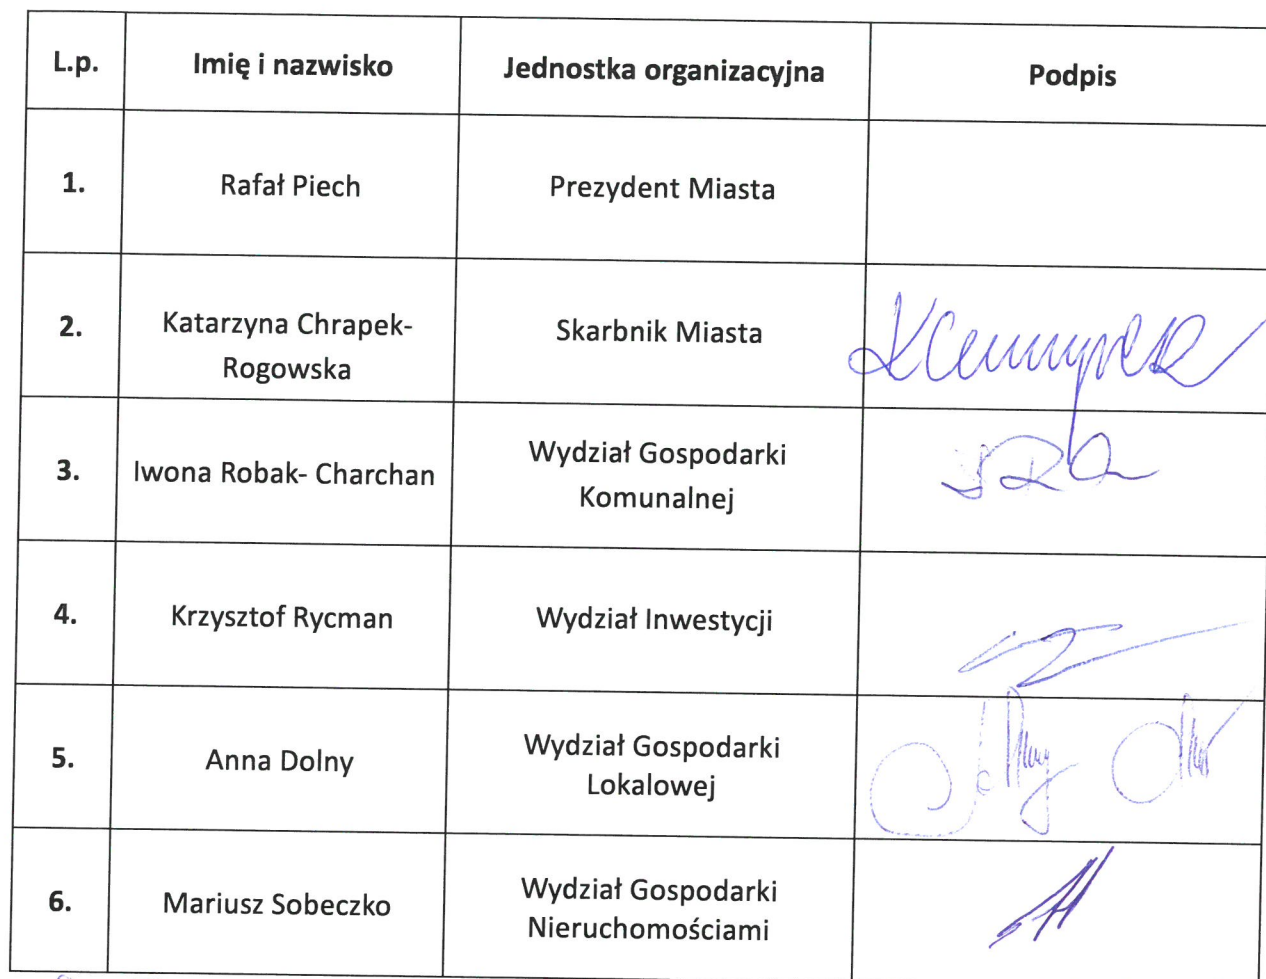 L.p. Imię i nazwisko Jednostka organizacyjna Podpis
1. Rafał Piech Prezydent Miasta
2. Katarzyna Chrapek-
Rogowska Skarbnik Miasta
3. Iwona Robak- Charchan Wydział Gospodarki
Komunalnej
4. Krzysztof Rycman Wydział Inwestycji
5. Anna Dolny Wydział Gospodarki
Lokalowej
6. Mariusz Sobeczko Wydział Gospodarki
Nieruchomościami